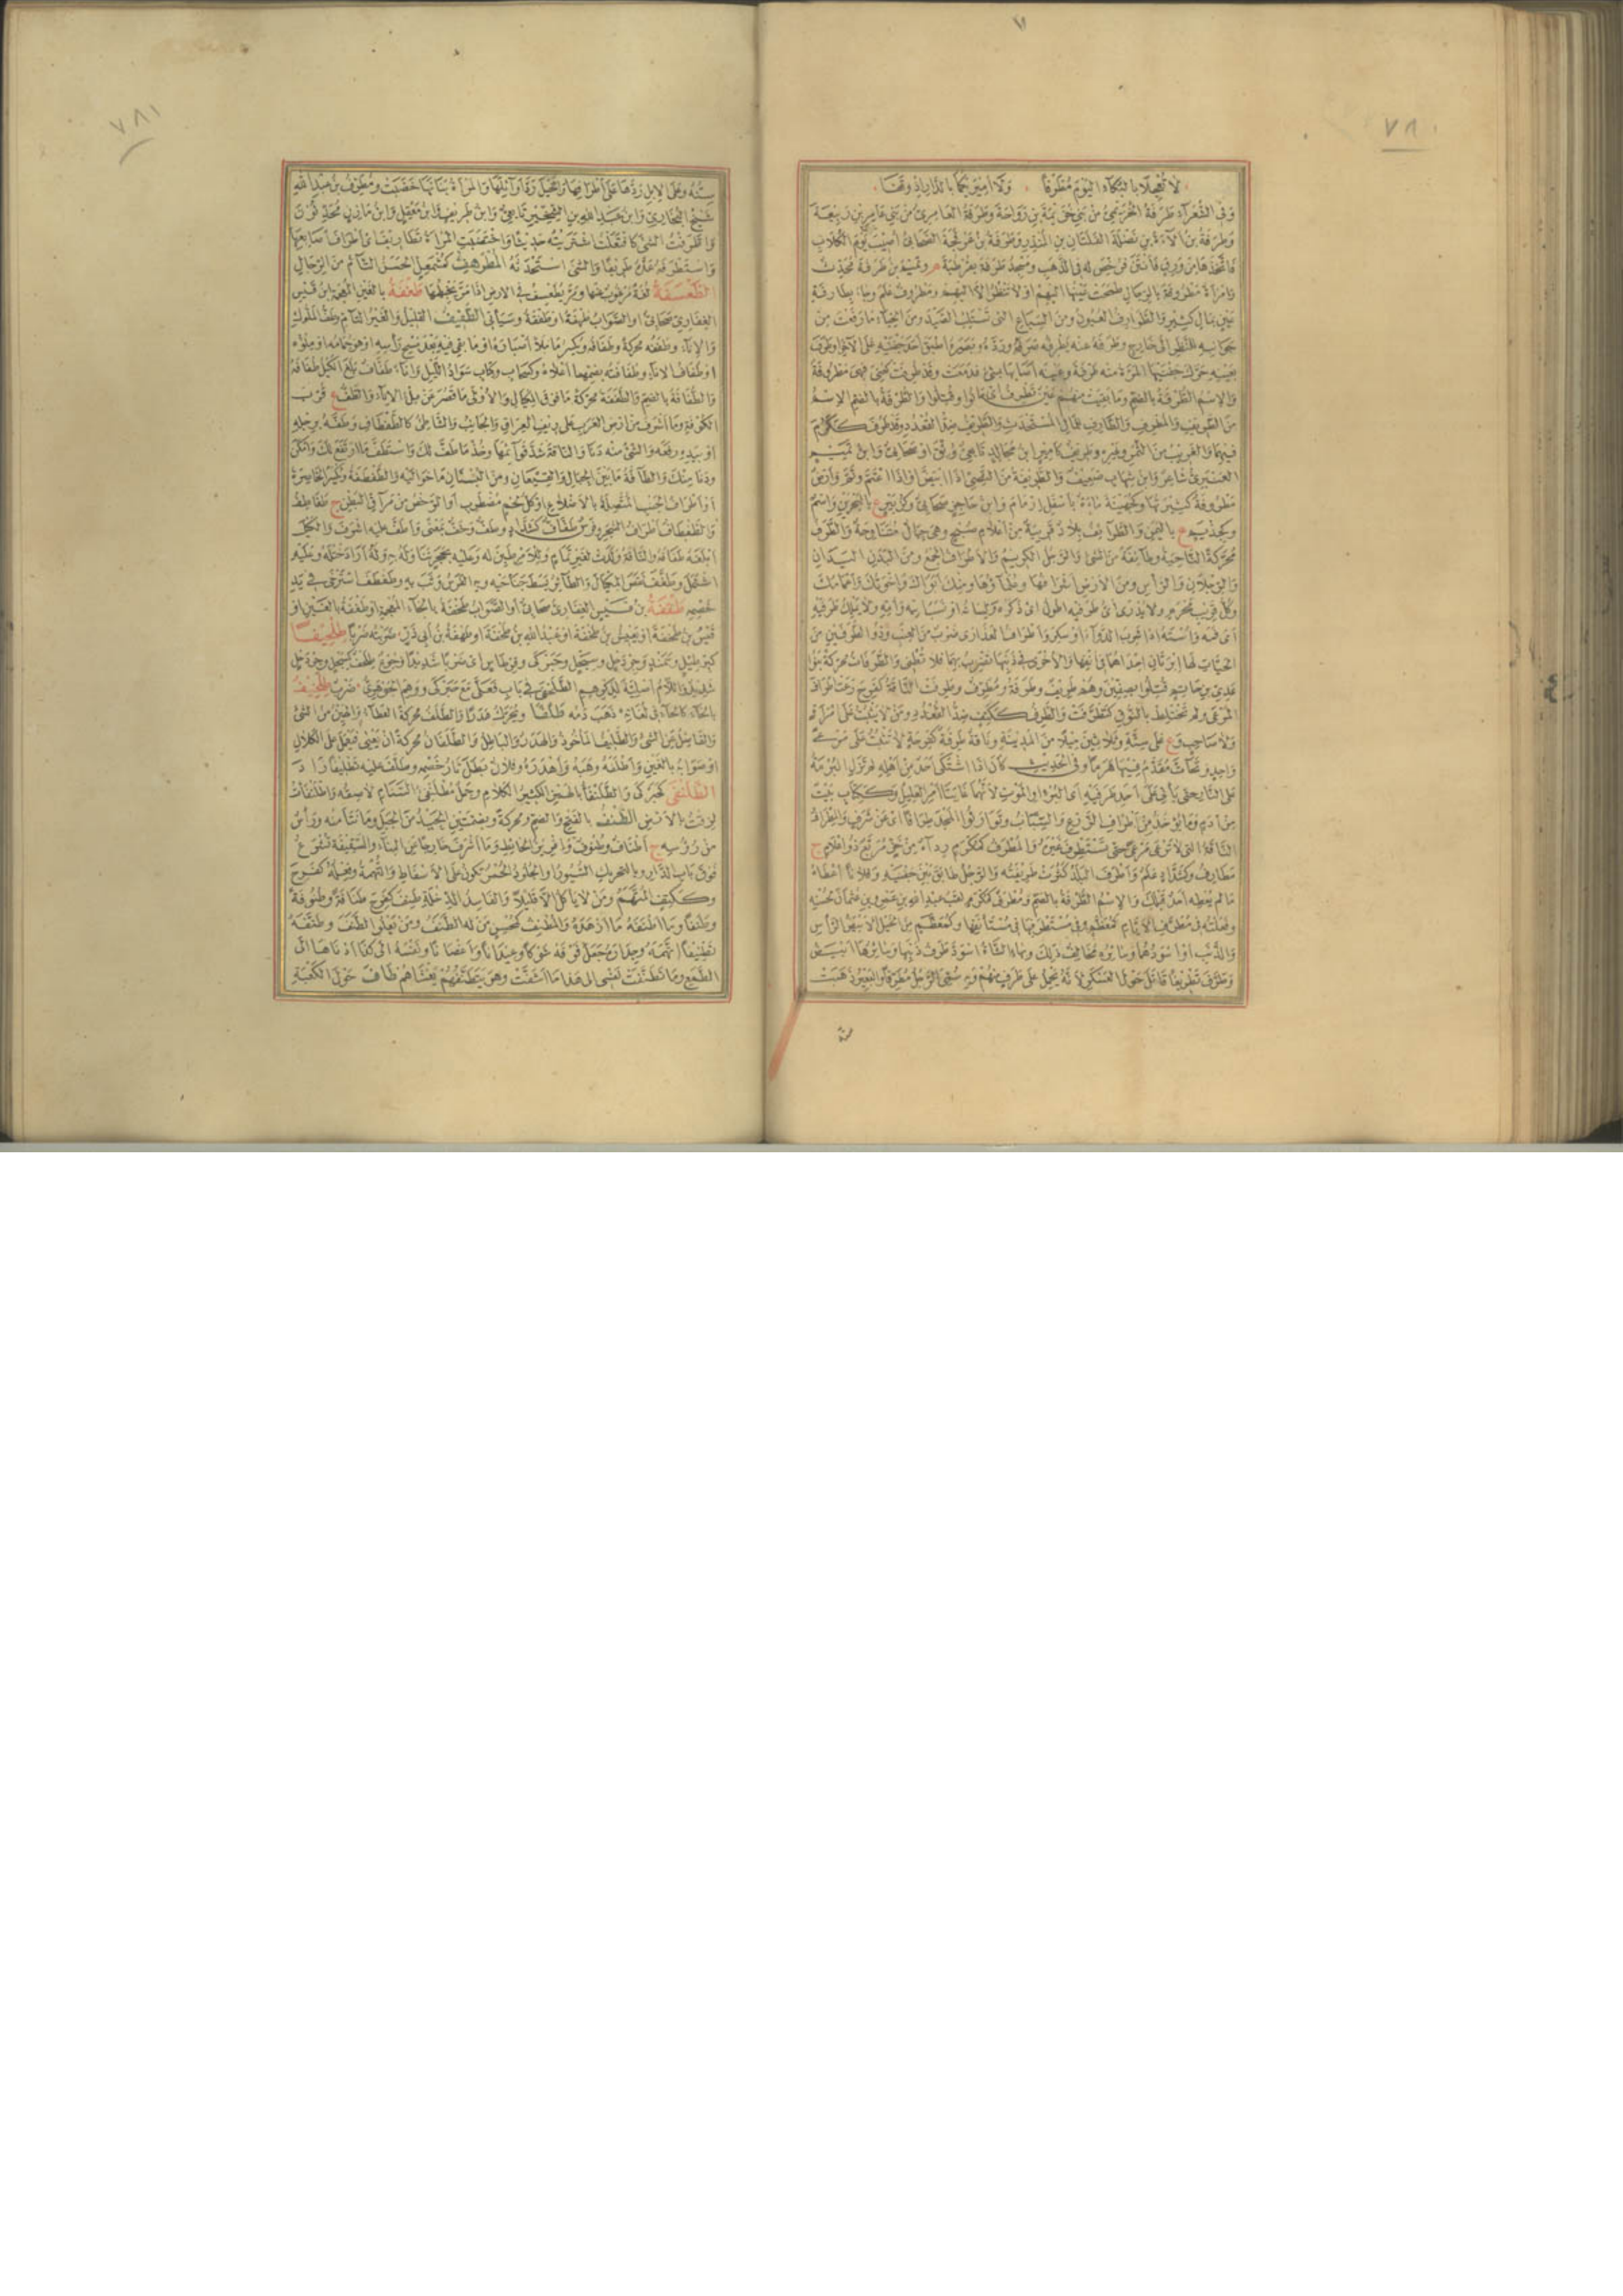 ٧٨٠
لا تعجلا بالبكاء اليوم مطرفا ولا أميريكما بالدار إذ وقفا
وفي الشعراء طرفة الخزيمي من بني خزيمة بن رواحة وطرفة العامري من بني عامر بن ربيعة
وطرفة بن ألاءة بن نضلة الفلتان بن المنذر وطرفة بن عرفجة الصحابي أصيب يوم الكلاب
فاتخذها من ورق فأنتن فرخص له في الذهب ومسجد طرفة بقرطبة م وتميم بن طرفة محدث
وامرأة مطروفة بالرجال طمحت عينها إليهم أو لا تنظر إلا إليهم ومطروف علم وجاء بطارفة
عين بمال كثير والطوارف العيون ومن السباع التي تستلب الصيد ومن الخباء ما رفعت من
جوانبه للنظر إلى خارج وطرفه عنه يطرفه صرفه ورده وبصره أطبق أحد جفنيه على الآخر وطرف
بعينه حرك جفنيها المرة منه طرفة وعينه أصابها بشيء فدمعت وقد طرفت كعني فهي مطروفة
والاسم الطرفة بالضم وما بقيت منهم عين تطرف أي ماتوا وقتلوا والطرفة بالضم الاسم
من الطريف والمطرف والطارف للمال المستحدث والطريف ضد القعدد وقد طرف ككرم
فيهما والغريب من الثمر وغيره وطريف كأمير ابن مجالد تابعي وثق أو صحابي وابن تميم
العنبري شاعر وابن شهاب ضعيف والطريفة من النصي إذا ابيض أو إذا اعتم وتم وأرض
مطروفة كثيرتها وكجهينة ماءة بأسفل أرمام وابن حاجز صحابي وكزبير ع بالبحرين واسم
وكحذيم ع باليمن والطرائف بلاد قريبة من أعلام صبح وهي جبال متناوحة والطرف
محركة الناحية وطائفة من الشيء والرجل الكريم والأطراف الجمع ومن البدن اليدان
والرجلان والرأس ومن الأرض أشرافها وعلماؤها ومنك أبواك وإخوتك وأعمامك
وكل قريب محرم ولا يدرى أي طرفيه أطول أي ذكره ولسانه أو نسب أبيه وأمه ولا يملك طرفيه
أي فمه واسته إذا شرب الدواء أو سكر وأطراف العذارى ضرب من العنب وذو الطرفين من
الحيات لها إبرتان إحداهما في أنفها والأخرى في ذنبها تضرب بهما فلا تطني والطرفات محركة بنو
عدي بن حاتم قتلوا بصفين وهم طريف وطرفة ومطرف وطرفت الناقة كفرح رعت أطراف
المرعى ولم تختلط بالنوق كتطرفت والطرف ككتف ضد القعدد ومن لا يثبت على امرأة
ولا صاحب و ع على ستة وثلاثين ميلا من المدينة وناقة طرفة كفرحة لا تثبت على مرعى
واحد وتحات مقدم فيها هرما وفي الحديث كان إذا اشتكى أحد من أهله لم تزل البرمة
على النار حتى يأتي على أحد طرفيه أي البرء أو الموت لأنهما غايتا أمر العليل وككتاب بيت
من أدم وما يؤخذ من أطراف الزرع والسباب وتوارثوا المجد طرافا أي عن شرف والمطراف
الناقة التي لا ترعى مرعى حتى تستطرف غيره والمطرف كمكرم رداء من خز مربع ذو أعلام ج
مطارف وكشداد علم وأطرف البلد كثرت طريفته والرجل طابق بين جفنيه وفلانا أعطاه
ما لم يعطه أحد قبلك والاسم الطرفة بالضم ومطرف كمكرم لقب عبد الله بن عمرو بن عثمان لحسنه
وفعلته في مطرف الأيام كمعظم وفي مستطرفها في مستأنفها وكمعظم من الخيل الأبيض الرأس
والذنب أو اسودهما وسائره مخالف ذلك وبهاء الشاة اسود طرف ذنبها وسائرها أبيض
وطرف تطريفا قاتل حول العسكر لأنه يحمل على طرف منهم وبه سمي الرجل مطرفا والبعير ذهبت
سنه
٧٨١
سنه وعلى الإبل رد على أطرافها والخيل رد أوائلها والمرأة بنانها خضبت ومطرف بن عبد الله
شيخ البخاري وابن عبد الله بن الشخير تابعي وابن طريف وابن معقل وابن مازن محدثون
واطرفت الشيء كافتعلت اشتريته حديثا واختضبت المرأة تطاريف أي أطراف أصابعها
واستطرفه عده طريفا والشيء استحدثه المطرهف كمشمعل الحسن التام من الرجال
الطعسفة لغة مرغوب عنها ومر يطعسف في الأرض إذا مر يخبطها طغفة بالغين المعجمة ابن قيس
الغفاري صحابي أو الصواب طهفة أو طقفة وسيأتي الطفيف القليل والغير التام وطف المكوك
والإناء وطففه محركة وطفافه ويكسر ما ملأ أصباره أو ما بقي فيه بعد مسح رأسه أو هو جمامه أو ملؤه
أو طفاف الإناء وطفافته بضمهما أعلاه وكسحاب وكتاب سواد الليل وإناء طفاف بلغ الكيل طفافه
والطفافة بالضم والطففة محركة ما فوق المكيال والأوفى ما قصر عن ملء الإناء والطف ع قرب
الكوفة وما أشرف من أرض العرب على ريف العراق والجانب والشاطئ كالطفطاف وطفه برجله
أو بيده رفعه والشيء منه دنا والناقة شد قوائمها وخذ ما طف لك واستطف ما ارتفع لك وأمكن
ودنا منك والطافة ما بين الجبال والقيعان ومن البستان ما حواليه والطفطفة ويكسر الخاصرة
أو أطراف الجنب المتصلة بالأضلاع أو كل لحم مضطرب أو الرخص من مراق البطن ج طفاطف
والطفطاف أطراف الشجر وفرس طفاف كشداد وطف وخف بمعنى وأطف عليه أشرف والكيل
أبلغه طفافه والناقة ولدت لغير تمام وللأمر طبن له وعليه بحجر تناوله به وله أراد ختله وعليه
اشتمل وطفف نقص المكيال والطائر بسط جناحيه وبه الفرس وثب به وطفطف استرخى في يد
خصمه طقفة بن قيس الغفاري صحابي أو الصواب طخفة بالخاء المعجمة أو طغفة بالغين أو
قيس بن طخفة أو يعيش بن طخفة أو عبد الله بن طخفة أو طهفة بن أبي ذر ضربته ضربا طلحيفا
كبرطيل وسمند وجردحل وسبحل وحبركى وقرطاس أي ضربا شديدا وجوع طلحف كسبحل وجردحل
شديد واللام أصلية لذكرهم الطلحفى في باب فعلى مع حبركى ووهم الجوهري ضربا طلخيفا
بالخاء كالحاء في لغاته ذهب دمه طلفا ويحرك هدرا والطلف محركة العطاء والهين من الشيء
والفاضل عن الشيء والطليف المأخوذ والهدر والباطل والطلفان محركة أن يعيى فيعمل على الكلال
أو صوابه بالغين وأطلفه وهبه وأهدره وفلان بطل ثأر خصمه وطلف عليه تطليفا زاد
الطلنفى كحبركى والطلنفأ بالهمز الكثير الكلام وجمل مطلنفئ السنام لاصقه واطلنفأت
لزقت بالأرض الطنف بالفتح والضم ومحركة وبضمتين الحيد من الجبل وما نتأ منه ورأس
من رؤوسه ج أطناف وطنوف وإفريز الحائط وما أشرف خارجا عن البناء والسقيفة تشرع
فوق باب الدار وبالتحريك السيور والجلود الحمر تكون على الأسفاط والتهمة وفعله كفرح
وككتف المتهم ومن لا يأكل إلا قليلا والفاسد الدخلة طنف كفرح طنافة وطنوفة
وطنفا وما أطنفه ما أزهده والمطنف كمحسن من له الطنف ومن يعلو الطنف وطنفه
تطنيفا اتهمه وجداره جعل فوقه شوكا وعيدانا وأغصانا ونفسه إلى كذا أدناها إلى
الطمع وما تطنفت نفسي إلى هذا ما أشفت وهو يتطنفهم يغشاهم طاف حول الكعبة